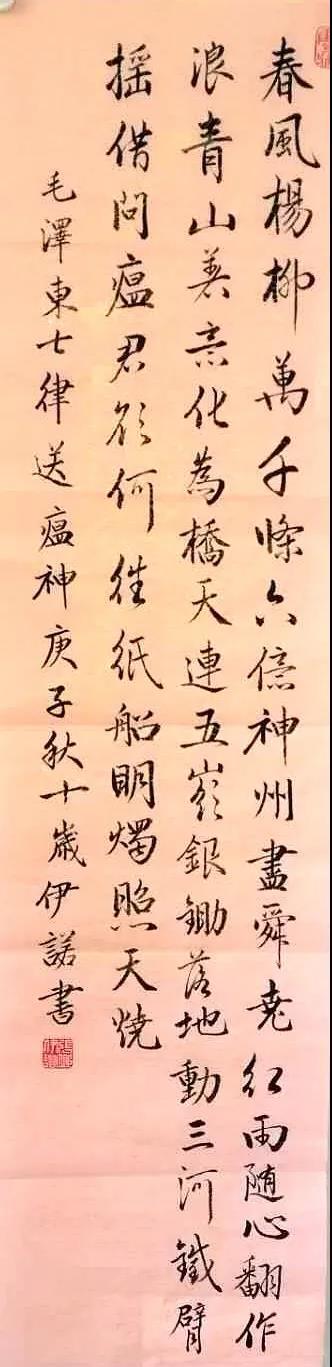 春風楊柳萬千條六億神州盡舜堯紅雨随心翻作
浪青山着意化為橋天連五嶺銀鋤落地動三河鐵臂
摇借問瘟君欲何往紙船明燭照天燒
毛澤東七律送瘟神庚子秋十歲伊諾書